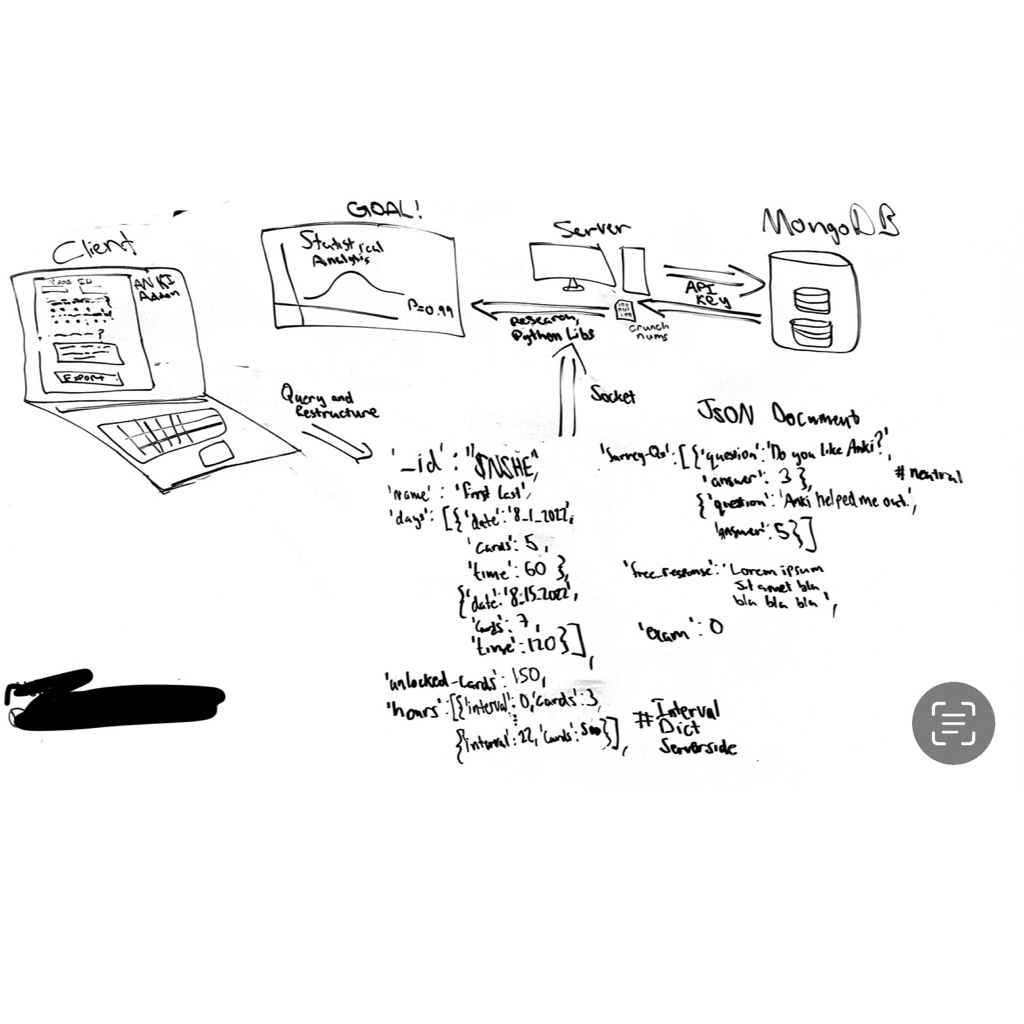 GOAL!
Client
Server
MongoDB
ANKI
Addon
Export
Statistical
Analysis
P=0.99
API
Key
Research,
Python Libs
crunch
nums
Query and
Restructure
Socket
JSON Document
'_id': "$NSHE",
'name': 'First Last',
'days': [{'date':'8_1_2022',
'cards': 5,
'time': 60 },
{'date':'8_15_2022',
'cards': 7,
'time': 120}],
'unlocked-cards': 150,
'hours':[{'interval': 0,'cards':3,
{'interval': 22, 'cards': 500}],
# Interval
Dict
Serverside
'Survey-Qs': [{'question':'Do you like Anki?',
'answer': 3 },
# neutral
{'question': 'Anki helped me out.',
'answer': 5}]
'free_response': 'Lorem ipsum
Sit amet bla
bla bla bla',
'exam': 0